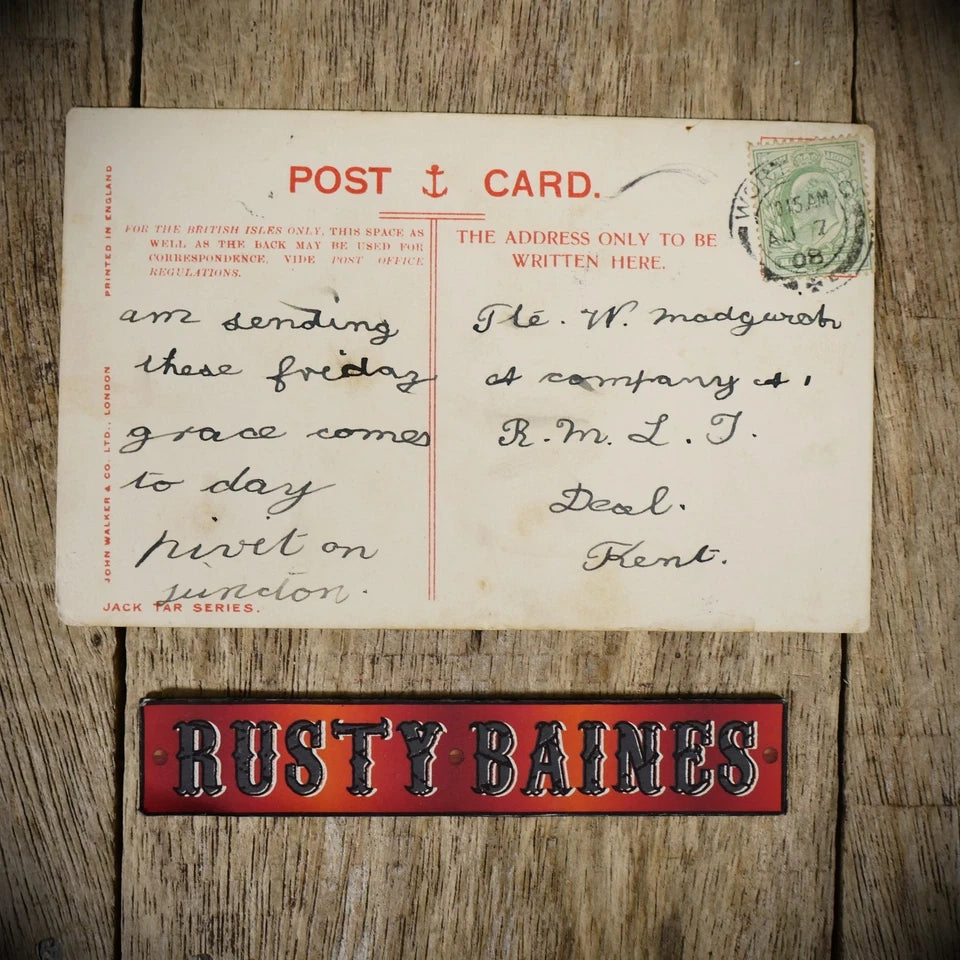 POST CARD.
PRINTED IN ENGLAND
JOHN WALKER & CO. LTD., LONDON
FOR THE BRITISH ISLES ONLY, THIS SPACE AS
WELL AS THE BACK MAY BE USED FOR
CORRESPONDENCE, VIDE POST OFFICE
REGULATIONS.
am sending
these friday
grace comes
to day
pivit on
junction.
JACK TAR SERIES.
THE ADDRESS ONLY TO BE
WRITTEN HERE.
Pte. W.
at company at
R. M. L. I.
Deal.
Kent.
10 15 AM
AU 7
08
RUSTY BAINES